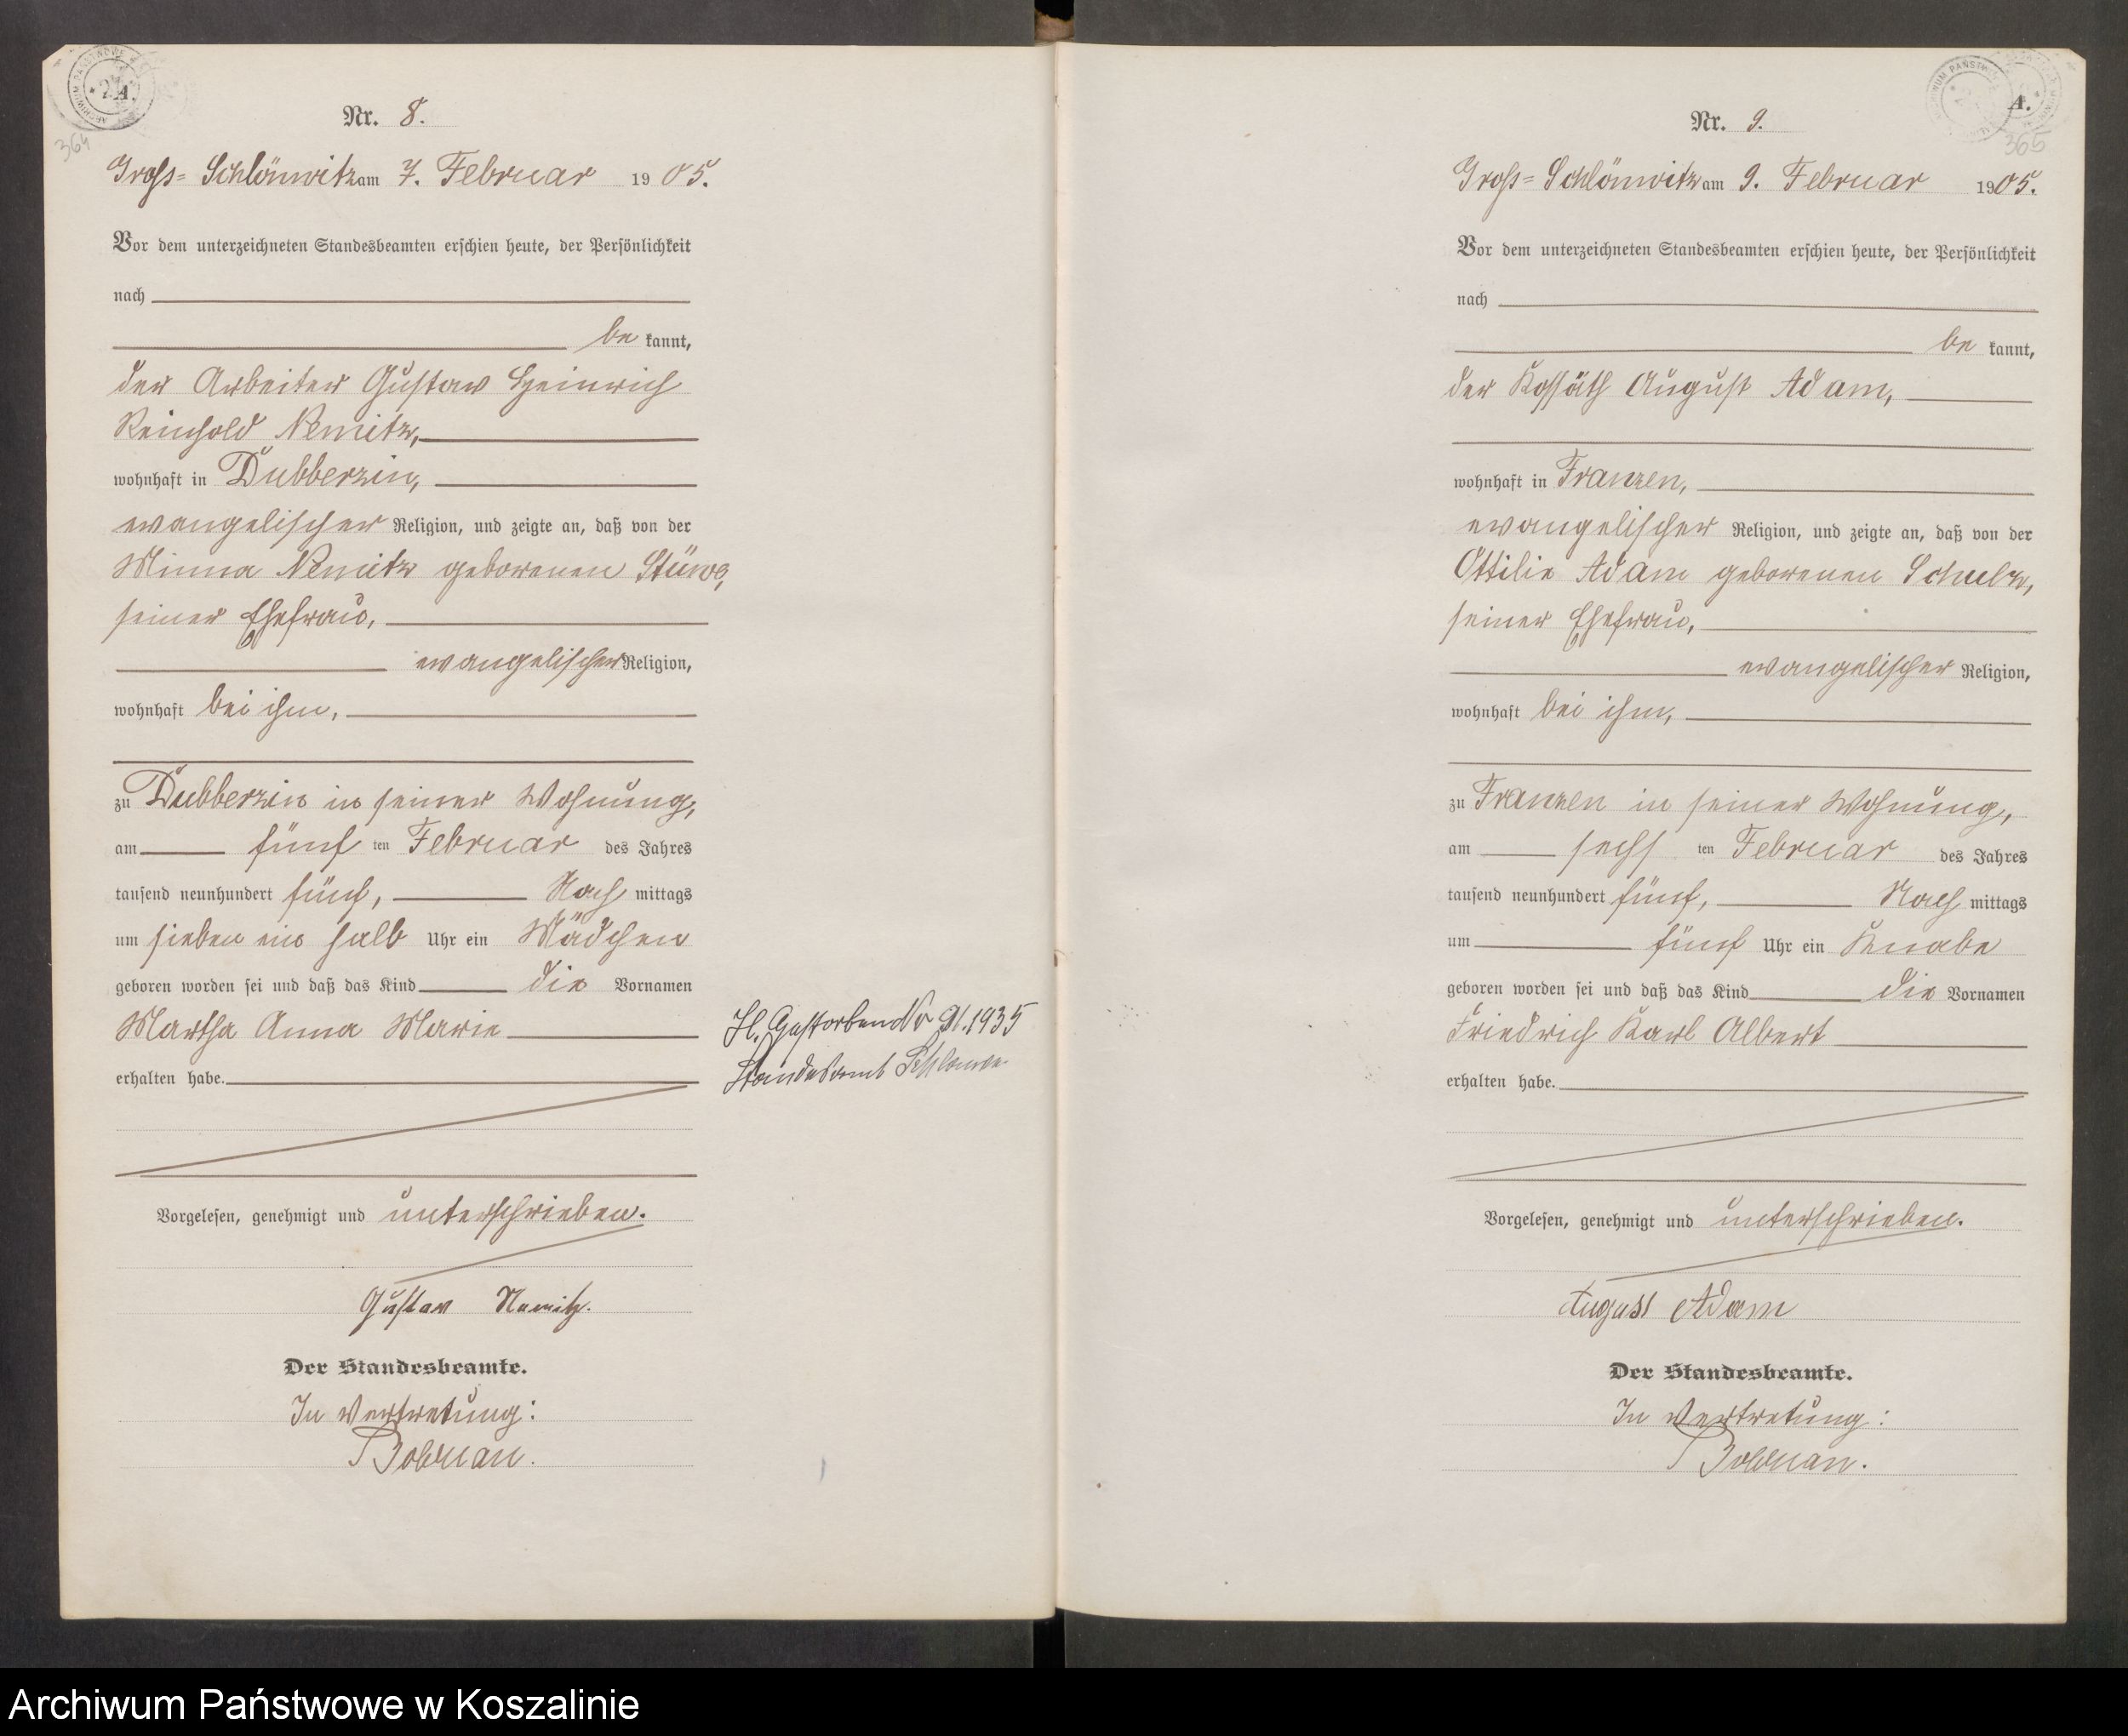 A.
364
Nr. 8.
Gross-Schlönwitz am 7. Februar 1905.
Vor dem unterzeichneten Standesbeamten erschien heute, der Persönlichkeit
nach
be kannt,
der Arbeiter Gustav Heinrich
Reinhold Nemitz,
wohnhaft in Dubberzin,
evangelischer Religion, und zeigte an, daß von der
Minna Nemitz geborenen Stüwe,
seiner Ehefrau,
evangelischer Religion,
wohnhaft bei ihm,
zu Dubberzin in seiner Wohnung,
am fünf ten Februar des Jahres
tausend neunhundert fünf, Nach mittags
um sieben ein halb Uhr ein Mädchen
geboren worden sei und daß das Kind die Vornamen
Martha Anna Marie
erhalten habe.
Gestorben Nr 1935
Standesamt
Vorgelesen, genehmigt und unterschrieben.
Gustav Nemitz.
Der Standesbeamte.
In Vertretung:
A.
365
Nr. 9.
Gross-Schlönwitz am 9. Februar 1905.
Vor dem unterzeichneten Standesbeamten erschien heute, der Persönlichkeit
nach
be kannt,
der Kossäth August Adam,
wohnhaft in Franzen,
evangelischer Religion, und zeigte an, daß von der
Ottilie Adam geborenen Schulz,
seiner Ehefrau,
evangelischer Religion,
wohnhaft bei ihm,
zu Franzen in seiner Wohnung,
am sechs ten Februar des Jahres
tausend neunhundert fünf, Nach mittags
um fünf Uhr ein Knabe
geboren worden sei und daß das Kind die Vornamen
Friedrich Karl Albert
erhalten habe.
Vorgelesen, genehmigt und unterschrieben.
August Adam
Der Standesbeamte.
In Vertretung:
Archiwum Państwowe w Koszalinie